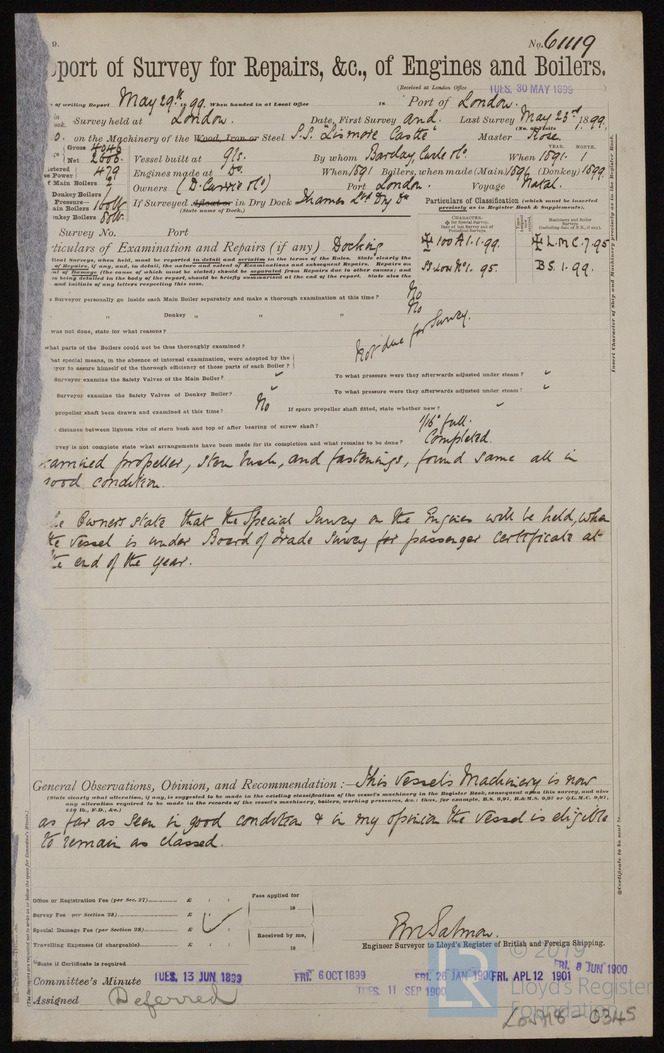 9.
No. 61119
port of Survey for Repairs, &c., of Engines and Boilers.
(Received at London Office TUES. 30 MAY 1899
of writing Report May 29th 1899. When handed in at Local Office 18 Port of London.
Survey held at London. Date, First Survey and. Last Survey May 23rd, 1899.
(No. of Visits 1.)
on the Machinery of the Wood, Iron or Steel S.S. "Lismore Castle" Master Rose
Gross 4046
Net 2606 Vessel built at Gls. By whom Barclay, Curle & Co. When 1891. 1
YEAR. MONTH.
479 Engines made at Do. When 1891 Boilers, when made (Main) 1896 (Donkey) 1899
Main Boilers 2 Owners (D. Currie & Co) Port London. Voyage Natal.
Donkey Boilers 1
Pressure—
ain Boilers 160lb If Surveyed Afloat or in Dry Dock Thames
(State name of Dock.)
nkey Boilers 80lb.
Particulars of Classification (which must be inserted precisely as in Register Book & Supplements).
Survey No. Port
ticulars of Examination and Repairs (if any) Docking
100A1.1.99. L.M.C.7.95
SS Lon No 1. 95. B.S. 1.99.
Insert Character of Ship and Machinery precisely as in the Register Book
Surveyor personally go inside each Main Boiler separately and make a thorough examination at this time? No
" Donkey " " " No
was not done, state for what reasons? Not due for Survey.
what parts of the Boilers could not be thus thoroughly examined?
hat special means, in the absence of internal examination, were adopted by the
yor to assure himself of the thorough efficiency of those parts of each Boiler?
Surveyor examine the Safety Valves of the Main Boiler? " To what pressure were they afterwards adjusted under steam? "
Surveyor examine the Safety Valves of Donkey Boiler? " To what pressure were they afterwards adjusted under steam? "
propeller shaft been drawn and examined at this time? No If spare propeller shaft fitted, state whether new? "
distance between lignum vitæ of stern bush and top of after bearing of screw shaft? 1/16" full.
rvey is not complete state what arrangements have been made for its completion and what remains to be done? Completed.
xamined propeller, stern bush, and fastenings, found same all in
good condition.
he Owners state that the Special Survey on the Engines will be held, when
the vessel is under Board of Trade Survey for passenger certificate at
the end of the year.
General Observations, Opinion, and Recommendation :— This Vessel's Machinery is now
(State clearly what alteration, if any, is suggested to be made in the existing classification of the vessel's machinery in the Register Book, consequent upon this survey, and also
any alteration required to be made in the records of the vessel's machinery, boilers, working pressures, &c.: thus, for example, B.S. 9,97, B.&M.S. 9,97 or L.M.C. 9,97,
as far as seen in good condition & in my opinion the vessel is eligible
to remain as classed.
Office or Registration Fee (per Sec. 27) £ : :
Survey Fee per Section 28) £ : :
Special Damage Fee (per Section 28) £ : :
Travelling Expenses (if chargeable) £ : :
Fees applied for
18
Received by me,
18
State if Certificate is required
Certificate to be sent to
Salmon.
Engineer Surveyor to Lloyd's Register of British and Foreign Shipping.
Committee's Minute TUES, 13 JUN 1899 FRI. 6 OCT 1899 FRI. 26 JAN 1900 FRI. APL 12 1901 FRI. 8 JUN 1900
TUES. 11 SEP 1900
Assigned Deferred
© 2019
LR
Lloyd's Register
Foundation
LON718-0345